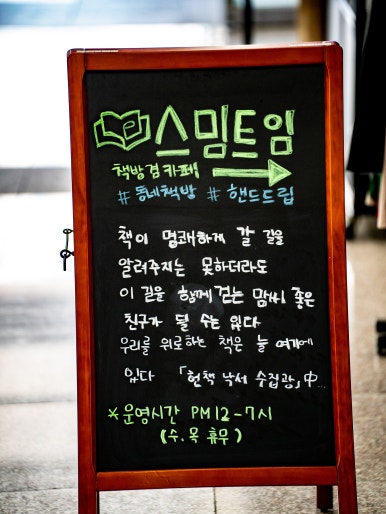 스밈트임
책방 겸 카페
#동네책방 #핸드드립
책이 명쾌하게 갈 길을
알려주지는 못하더라도
이 길을 함께 걷는 맘씨 좋은
친구가 될 수는 있다
우리를 위로하는 책은 늘 여기에
있다 「헌책 낙서 수집광」中..
*운영시간 PM 12-7시
(수.목 휴무)